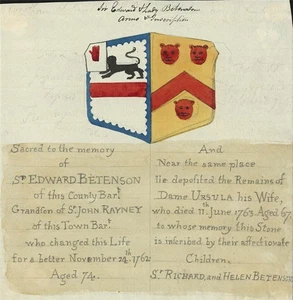 Sr Edward & Lady Betenson
Arms & Inscription
Sacred to the memory
of
Sr. EDWARD BETENSON
of this County Bart.
Grandson of Sr. JOHN RAYNEY
of this Town Bart.
who changed this Life
for a better November 24th. 1762
Aged 74.
And
Near the same place
lie deposited the Remains of
Dame URSULA his Wife,
who died 11th. June 1763. Aged 67
to whose memory this Stone
is inscribed by their affectionate
Children,
Sr. RICHARD, and HELEN BETENSON